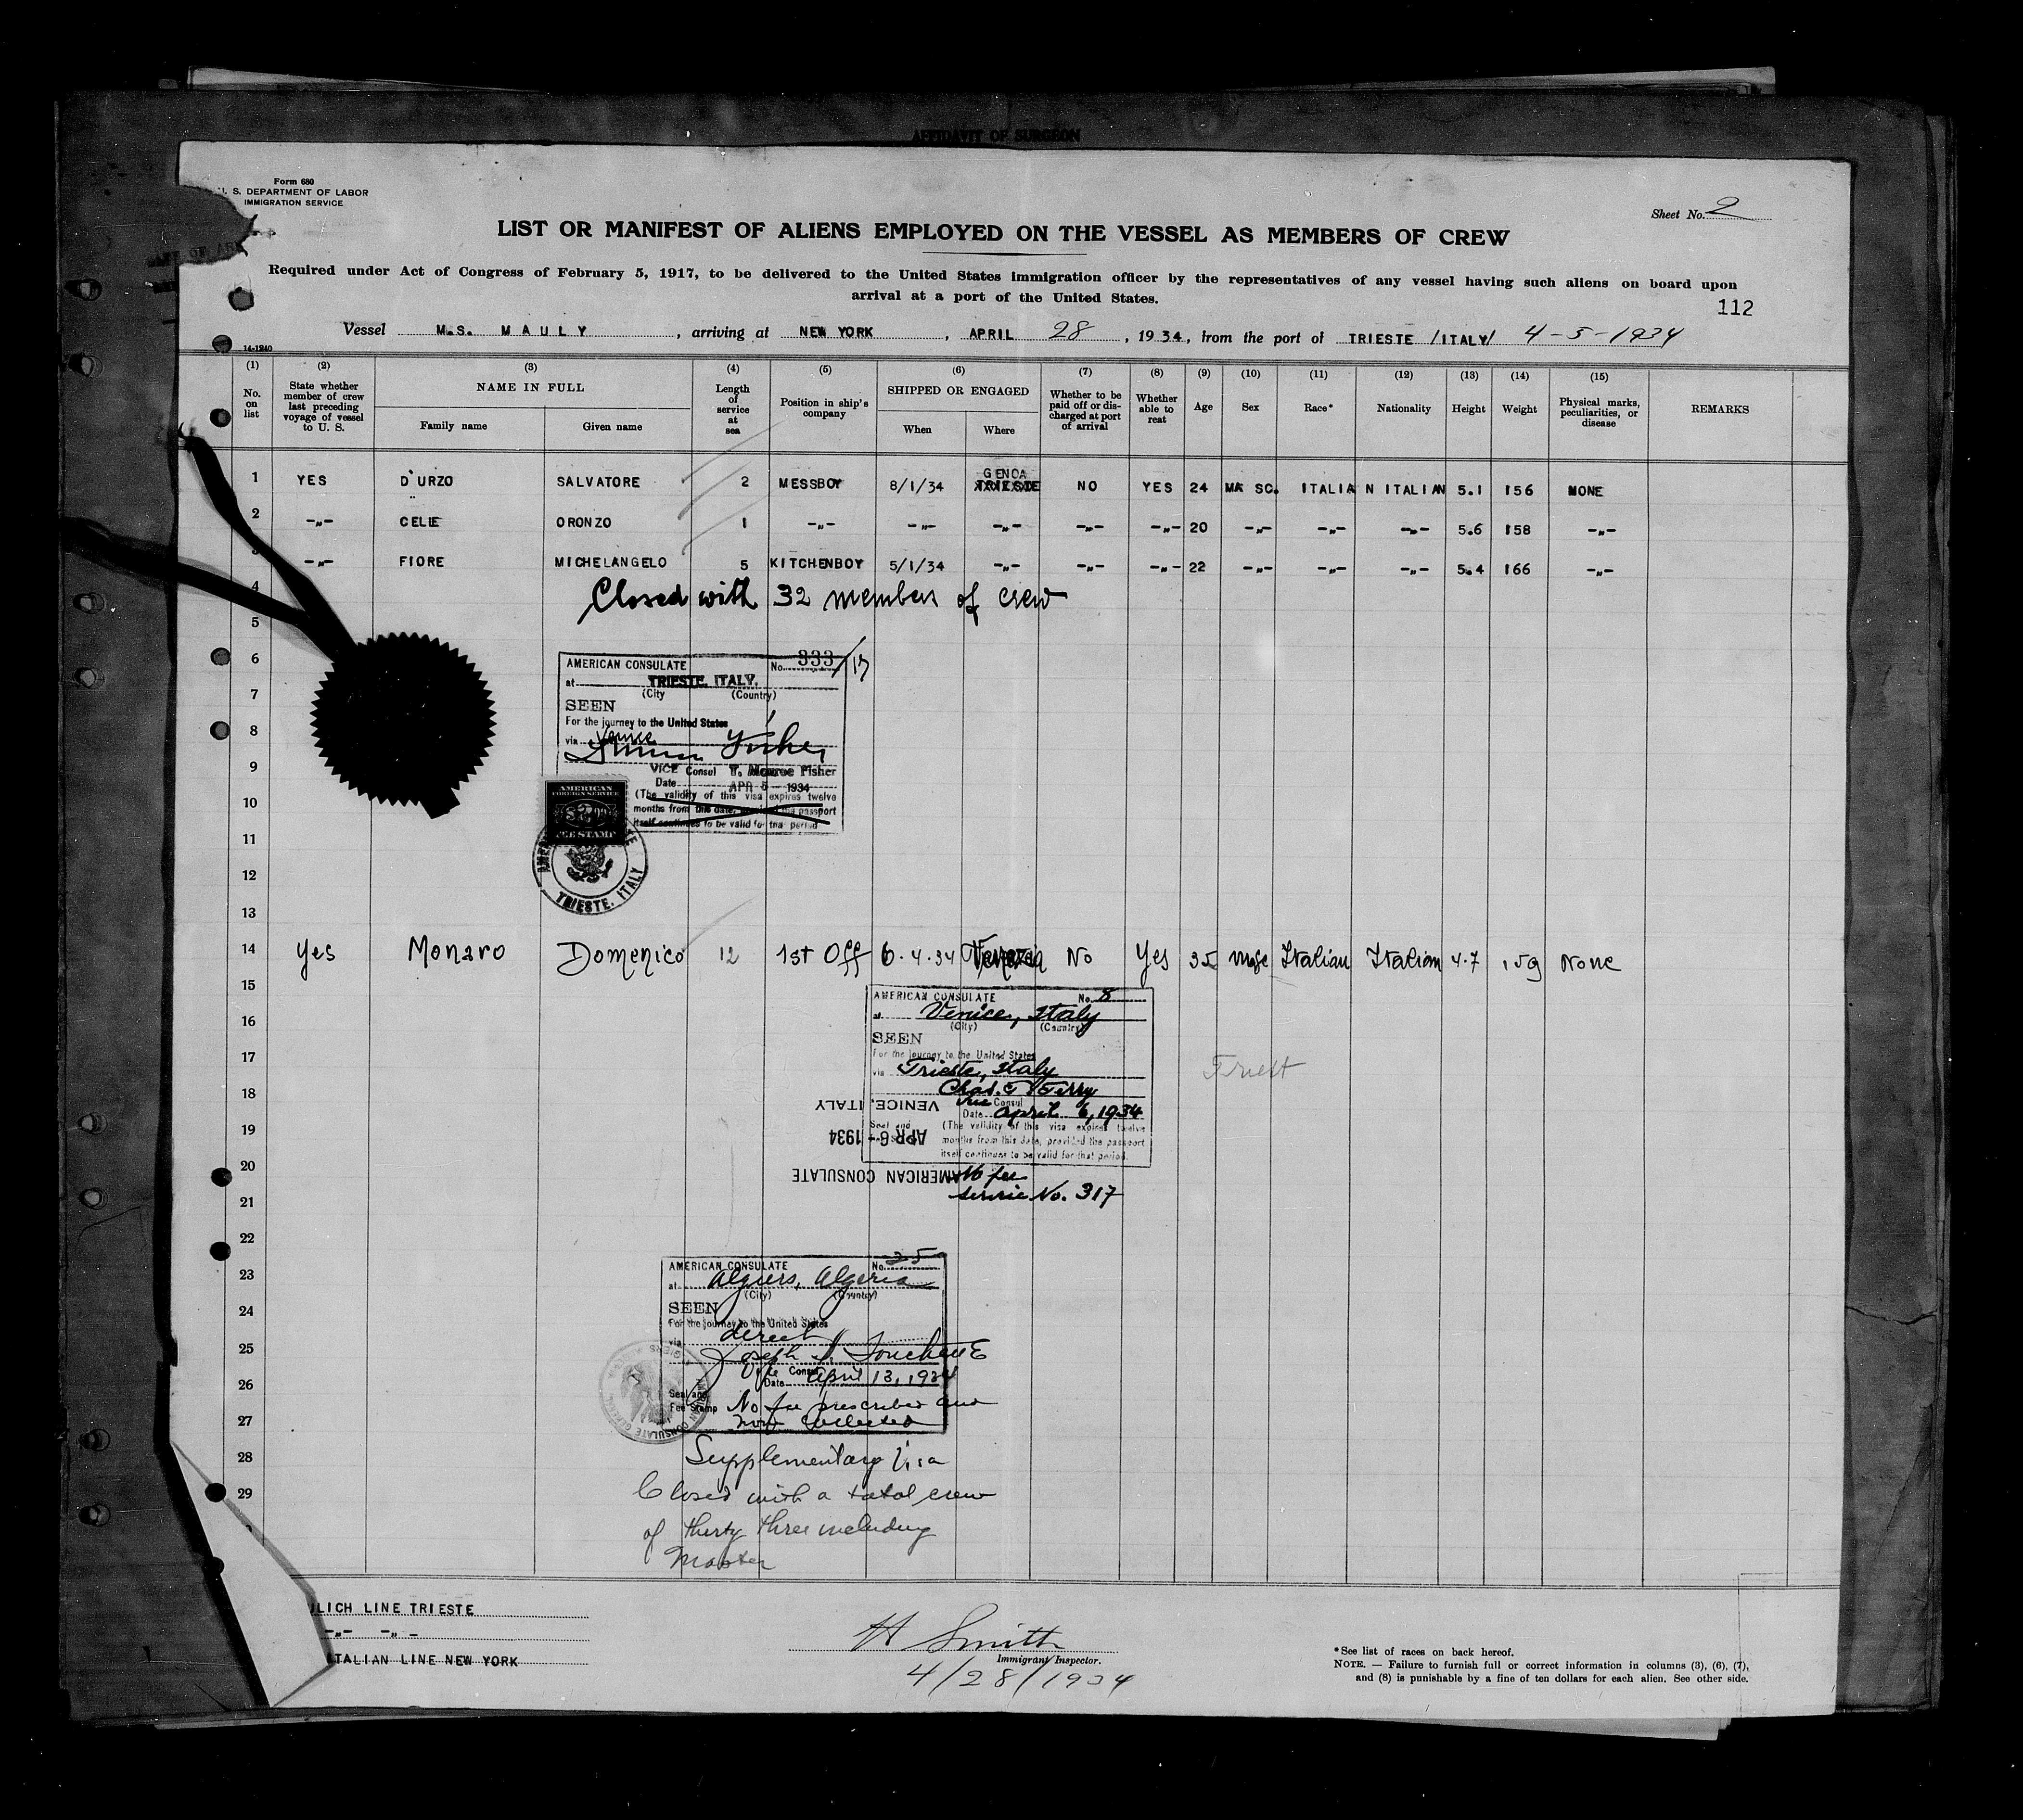 AFFIDAVIT OF SURGEON
Form 680
U. S. DEPARTMENT OF LABOR
IMMIGRATION SERVICE
Sheet No. 2
LIST OR MANIFEST OF ALIENS EMPLOYED ON THE VESSEL AS MEMBERS OF CREW
Required under Act of Congress of February 5, 1917, to be delivered to the United States immigration officer by the representatives of any vessel having such aliens on board upon
arrival at a port of the United States.
112
Vessel M.S. MAULY, arriving at NEW YORK, APRIL 28, 1934, from the port of TRIESTE /ITALY/ 4-5-1934
14-1240
(1) (2) (3) (4) (5) (6) (7) (8) (9) (10) (11) (12) (13) (14) (15)
No. on list
State whether member of crew last preceding voyage of vessel to U. S.
NAME IN FULL
Family name
Given name
Length of service at sea
Position in ship's company
SHIPPED OR ENGAGED
When
Where
Whether to be paid off or discharged at port of arrival
Whether able to reat
Age
Sex
Race*
Nationality
Height
Weight
Physical marks, peculiarities, or disease
REMARKS
GENOA
1 YES D'URZO SALVATORE 2 MESSBOY 8/1/34 TRIESTE NO YES 24 MA SC. ITALIA N ITALIAN 5.1 156 NONE
2 -"- CELIE ORONZO 1 -"- -"- -"- -"- -"- 20 -"- -"- -"- 5.6 158 -"-
3 -"- FIORE MICHELANGELO 5 KITCHENBOY 5/1/34 -"- -"- -"- 22 -"- -"- -"- 5.4 166 -"-
4 Closed with 32 members of crew
5
6
AMERICAN CONSULATE No. 333/17
at TRIESTE, ITALY.
7
(City (Country)
SEEN
For the journey to the United States
8
via Venice
9
VICE Consul T. Monroe Fisher
Date APR 5 - 1934
10
(The validity of this visa expires twelve
months from this date, provided the passport
itself continues to be valid for that period
AMERICAN
FOREIGN SERVICE
FEE STAMP
11
12
TRIESTE, ITALY
13
14 Yes Monaro Domenico 12 1st Off 6.4.34 Venezia No Yes 35 Italian Italian 4.7 159 None
15
AMERICAN CONSULATE No. 8
16
at Venice, Italy
(City) (Country)
SEEN
17
For the journey to the United States
via Trieste, Italy
Triest
18
Chas. C. Terry
Vice Consul
VENICE, ITALY
Date April 6, 1934
19
Seal and
(The validity of this visa expires twelve
APR 6 - 1934
months from this date, provided the passport
itself continues to be valid for that period.
20
AMERICAN CONSULATE
No fee
21
service No. 317
22
23
AMERICAN CONSULATE No. 35
at Algiers, Algeria
(City) (Country)
24
SEEN
For the journey to the United States
via direct
25
Joseph
Vice Consul
26
Date April 13, 1934
Seal and
Fee Stamp No fee prescribed and
27
none collected
28 Supplementary Visa
29 Closed with a total crew
of thirty three including
Master
LICH LINE TRIESTE
-"- -"-
ITALIAN LINE NEW YORK
H Smith
Immigrant Inspector.
4/28/1934
*See list of races on back hereof.
NOTE. — Failure to furnish full or correct information in columns (3), (6), (7),
and (8) is punishable by a fine of ten dollars for each alien. See other side.